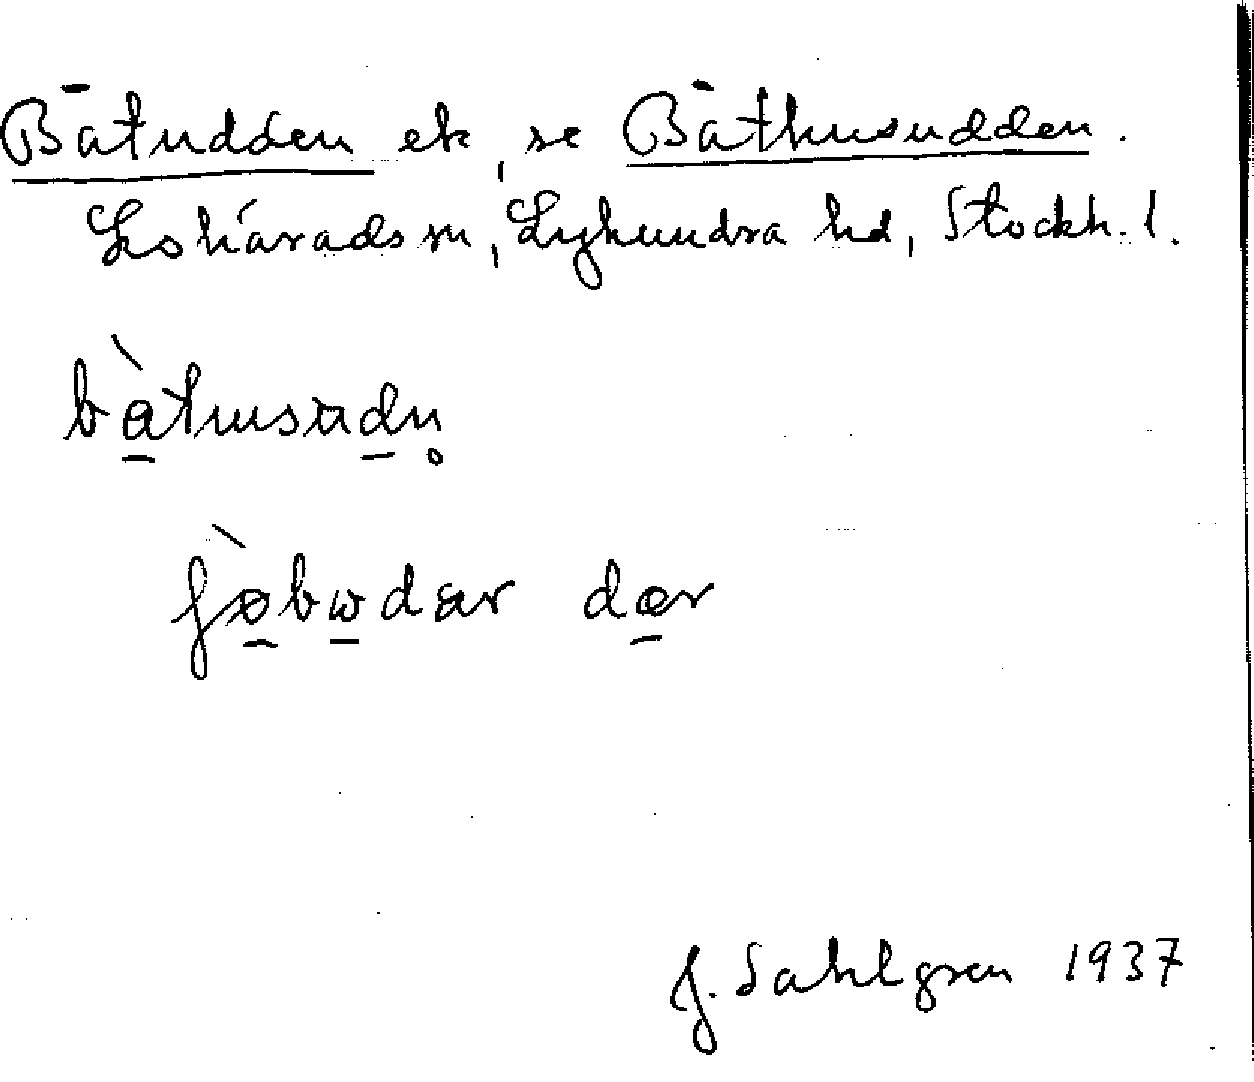 Båtudden ek, se Båthusudden.
Lohärads sn, Lyhundra hd, Stockh. l.
bàtusudn̥
fø̀bωdar dær
J. Sahlgren 1937